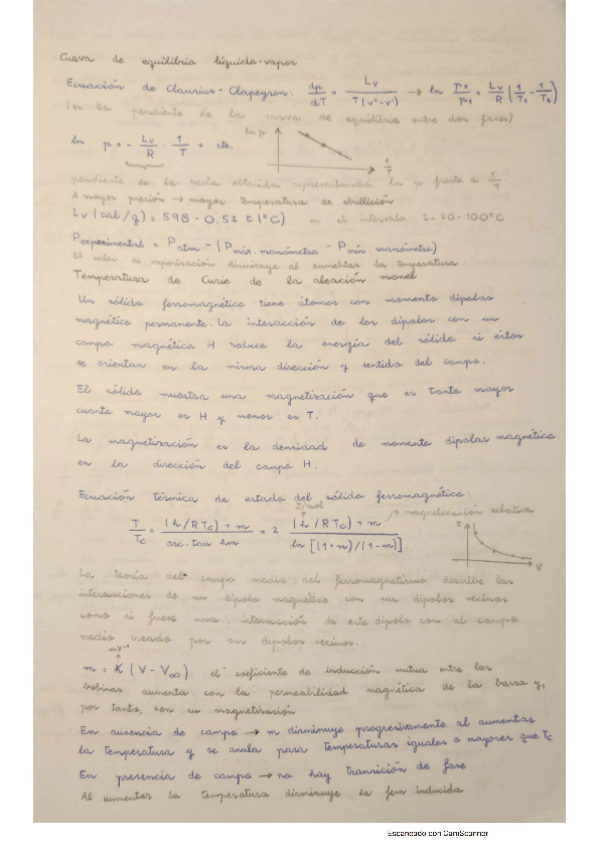 Curva de equilibrio líquido-vapor
Ecuación de Clausius-Clapeyron: dp/dT = Lv / T(v''-v') → ln p2/p1 = Lv/R (1/T1 - 1/T2)
(es la pendiente de la curva de equilibrio entre dos fases)
ln p = - Lv/R · 1/T + cte.
ln p
1/T
pendiente de la recta obtenida representando ln p frente a 1/T
A mayor presión → mayor temperatura de ebullición
Lv (cal/g) = 598 - 0.52 t(°C) en el intervalo t = 20-100°C
Pexperimental = Patm - (Pmáx. manómetro - Pmín. manómetro)
El calor de vaporización disminuye al aumentar la temperatura
Temperatura de Curie de la aleación monel
Un sólido ferromagnético tiene átomos con momento dipolar
magnético permanente. La interacción de los dipolos con un
campo magnético H reduce la energía del sólido si éstos
se orientan en la misma dirección y sentido del campo.
El sólido muestra una magnetización que es tanto mayor
cuanto mayor es H y menor es T.
La magnetización es la densidad de momento dipolar magnético
en la dirección del campo H.
Ecuación térmica de estado del sólido ferromagnético:
J/mol
T/Tc = (h/RTc) + m / arc.tan hm = 2 (h/RTc) + m / ln [(1+m)/(1-m)]
→ magnetización relativa
t
V
La teoría del campo medio del ferromagnetismo describe las
interacciones de un dipolo magnético con sus dipolos vecinos
como si fuese una interacción de este dipolo con el campo
medio creado por sus dipolos vecinos.
mV⁻¹
m = K (V - V∞) el coeficiente de inducción mutua entre las
bobinas aumenta con la permeabilidad magnética de la barra y,
por tanto, con su magnetización
En ausencia de campo → m disminuye progresivamente al aumentar
la temperatura y se anula para temperaturas iguales o mayores que Tc
En presencia de campo → no hay transición de fase
Al aumentar la temperatura disminuye la fem inducida
Escaneado con CamScanner